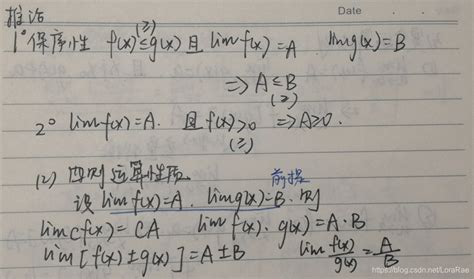 推论
Date
1° 保序性 f(x)≤g(x) 且 limf(x)=A . limg(x)=B
(≥)
⇒ A≤B
(≥)
2° limf(x)=A. 且 f(x)>0 ⇒A≥0.
(≥)
(2) 四则运算性质
前提
设 limf(x)=A . limg(x)=B. 则
limcf(x)=CA limf(x)·g(x)=A·B
lim[f(x)±g(x)]=A±B lim f(x)/g(x)=A/B
https://blog.csdn.net/LoraRae